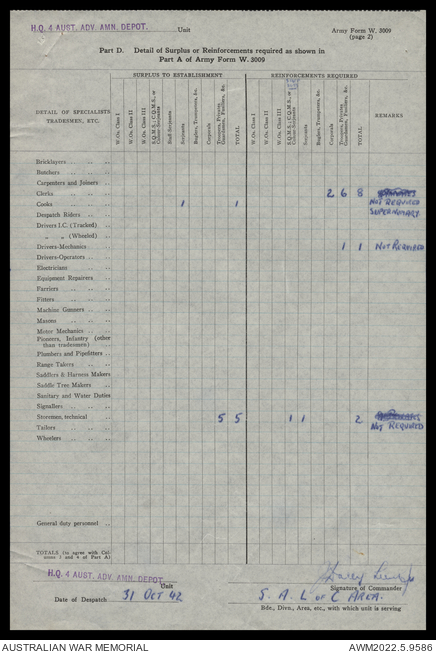 H.Q. 4 AUST. ADV. AMN. DEPOT. Unit Army Form W. 3009
(page 2)
Part D. Detail of Surplus or Reinforcements required as shown in
Part A of Army Form W. 3009
SURPLUS TO ESTABLISHMENT REINFORCEMENTS REQUIRED
DETAIL OF SPECIALISTS TRADESMEN, ETC. W.Os. Class I W.Os. Class II W.Os. Class III S.Q.M.S., C.Q.M.S., or Colour-Serjeants Staff-Serjeants Serjeants Buglers, Trumpeters, &c. Corporals Troopers, Privates, Guardsmen, Fusiliers, &c. TOTAL W.Os. Class I W.Os. Class II W.Os. Class III S.Q.M.S., C.Q.M.S., or Colour-Serjeants Serjeants Buglers, Trumpeters, &c. Corporals Troopers, Privates, Guardsmen, Fusiliers, &c. TOTAL REMARKS
Bricklayers .. .. ..
Butchers .. .. ..
Carpenters and Joiners ..
Clerks .. .. .. 2 6 8
NOT REQUIRED
Cooks .. .. .. 1 1
SUPERNUMARY
Despatch Riders .. ..
Drivers I.C. (Tracked) ..
" " (Wheeled) ..
Drivers-Mechanics .. 1 1 NOT REQUIRED
Drivers-Operators .. ..
Electricians .. ..
Equipment Repairers ..
Farriers .. .. ..
Fitters .. .. ..
Machine Gunners .. ..
Masons .. .. ..
Motor Mechanics .. ..
Pioneers, Infantry (other
than tradesmen) ..
Plumbers and Pipefitters ..
Range Takers .. ..
Saddlers & Harness Makers
Saddle Tree Makers ..
Sanitary and Water Duties
Signallers .. .. ..
Storemen, technical .. 5 5 1 1 2
Tailors .. .. .. NOT REQUIRED
Wheelers .. .. ..
General duty personnel ..
TOTALS (to agree with Columns 3 and 4 of Part A)
H.Q. 4 AUST. ADV. AMN. DEPOT Unit
Signature of Commander
Date of Despatch 31 OCT 42 S. A. L of C AREA.
Bde., Divn., Area, etc., with which unit is serving
AUSTRALIAN WAR MEMORIAL AWM2022.5.9586